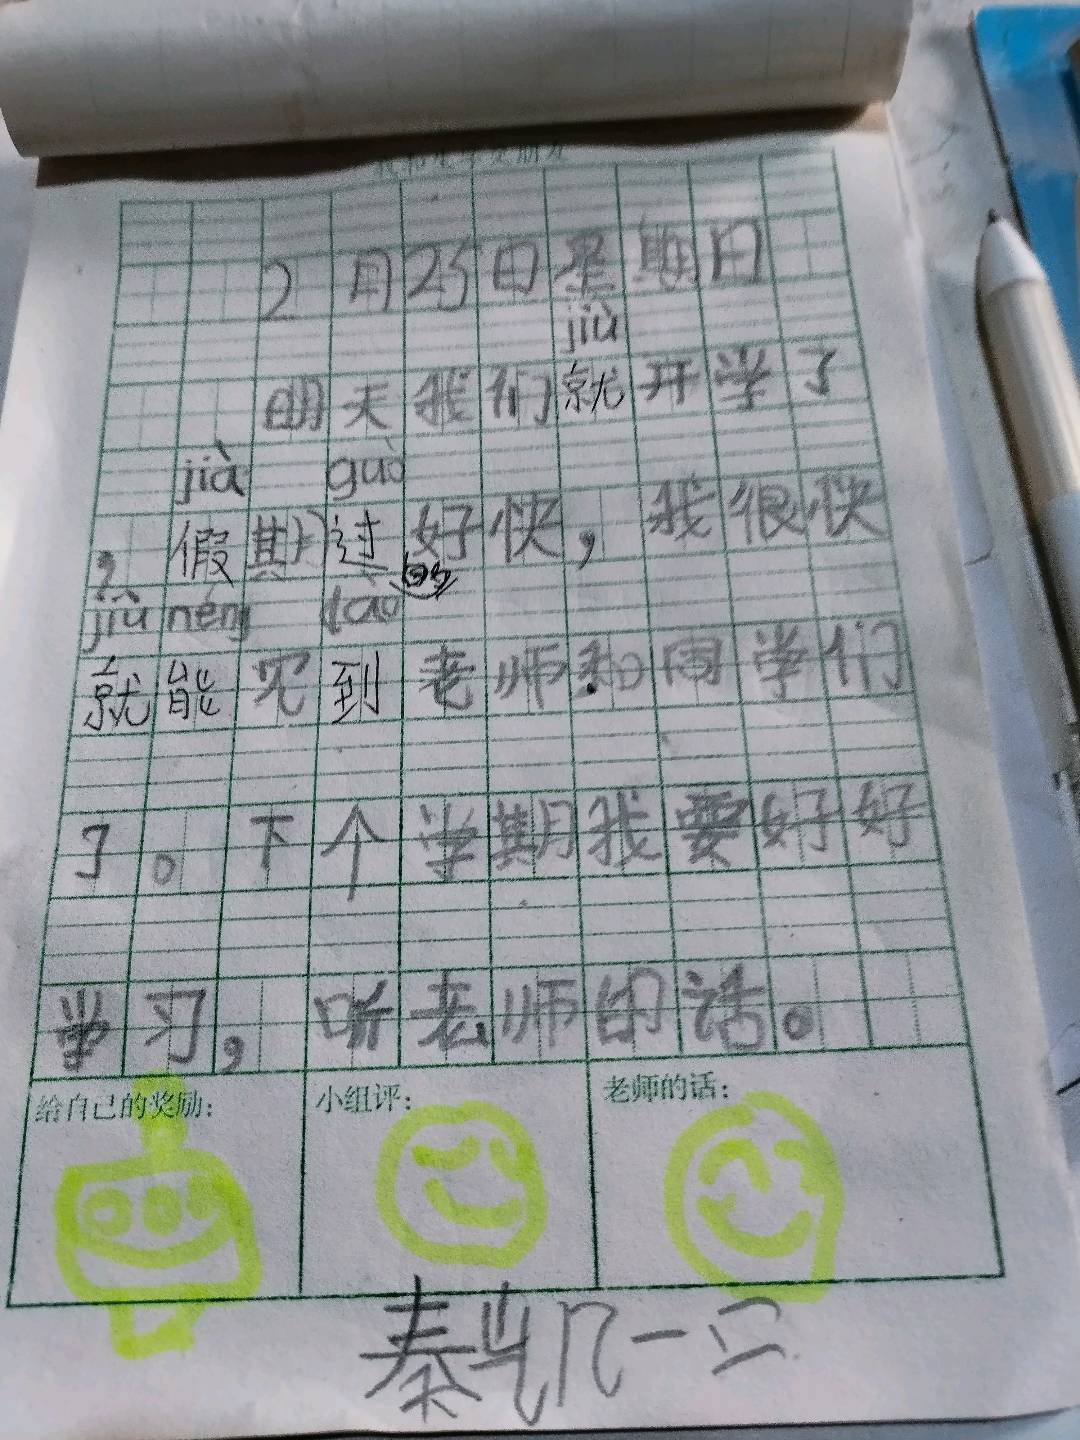 2月25日星期日
jiù
明天我们就开学了
jià guò
，假期过好快，我很快
的
jiù néng dào
就能见到老师和同学们
了。下个学期我要好好
学习，听老师的话。
给自己的奖励： 小组评： 老师的话：